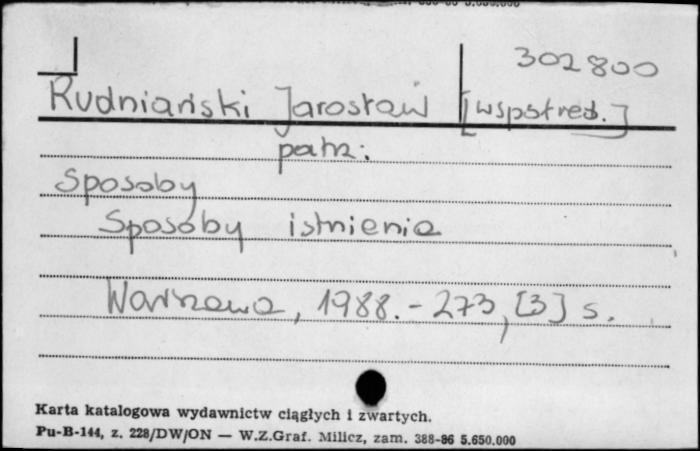 302800
Rudniański Jarosław [wspołred.]
patrz:
Sposoby
Sposoby istnienia
Warszawa, 1988. - 273, [3] s.
Karta katalogowa wydawnictw ciągłych i zwartych.
Pu-B-144, z. 228/DW/ON — W.Z.Graf. Milicz, zam. 388-86 5.650.000